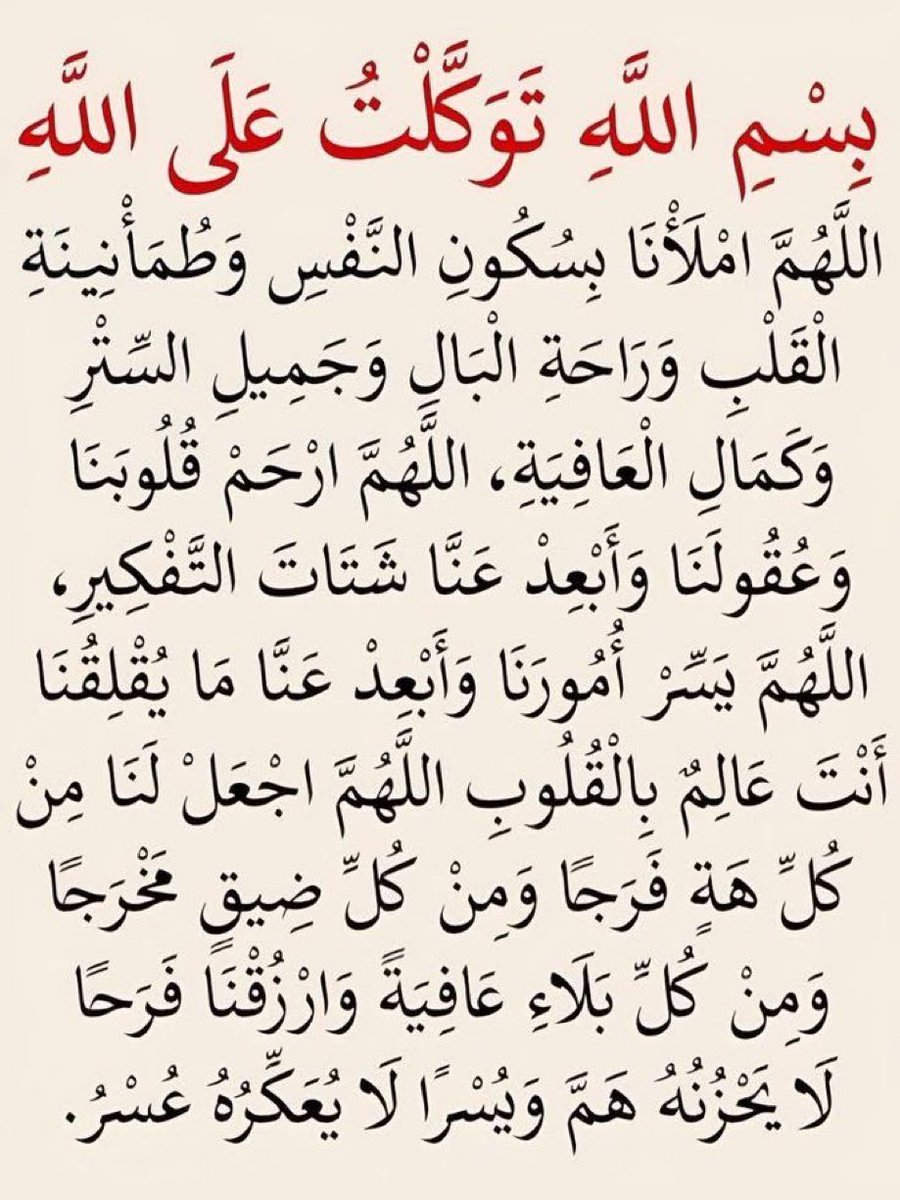 بِسْمِ اللَّهِ تَوَكَّلْتُ عَلَى اللَّهِ
اللَّهُمَّ امْلَأْنَا بِسُكُونِ النَّفْسِ وَطُمَأْنِينَةِ
الْقَلْبِ وَرَاحَةِ الْبَالِ وَجَمِيلِ السِّتْرِ
وَكَمَالِ الْعَافِيَةِ، اللَّهُمَّ ارْحَمْ قُلُوبَنَا
وَعُقُولَنَا وَأَبْعِدْ عَنَّا شَتَاتَ التَّفْكِيرِ،
اللَّهُمَّ يَسِّرْ أُمُورَنَا وَأَبْعِدْ عَنَّا مَا يُقْلِقُنَا
أَنْتَ عَالِمٌ بِالْقُلُوبِ اللَّهُمَّ اجْعَلْ لَنَا مِنْ
كُلِّ هَةٍ فَرَجًا وَمِنْ كُلِّ ضِيقٍ مَخْرَجًا
وَمِنْ كُلِّ بَلَاءِ عَافِيَةً وَارْزُقْنَا فَرَحًا
لَا يَحْزُنُهُ هَمَّ وَيُسْرًا لَا يُعَكِّرُهُ عُسْرُ.